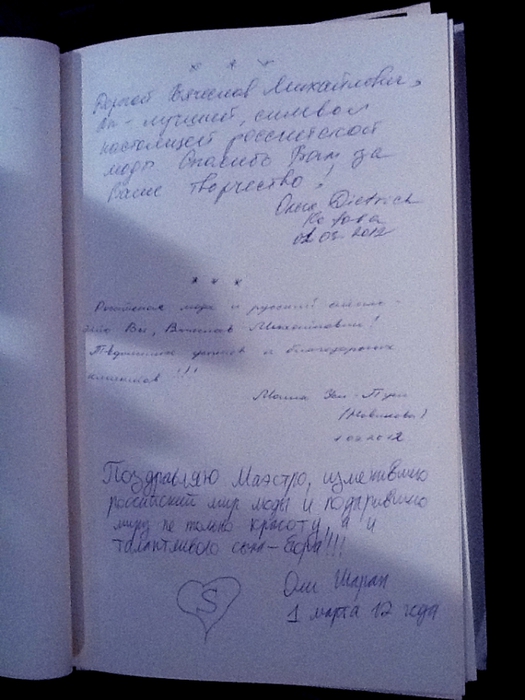 * * *
Дорогой Вячеслав Михайлович,
Вы - лучший, символ
настоящей российской
моды Спасибо Вам за
Ваше творчество!
Dietrich
Котова
02.03.2012
* * *
Российская мода и русский стиль -
это Вы, Вячеслав Михайлович!
и благодарных
клиентов!!!
(Новикова)
Поздравляю Маэстро, изменившего
российский мир моды и подарившего
миру не только красоту, а и
талантливого сына - Егора!!!
S
Оли Шаран
1 марта 12 года